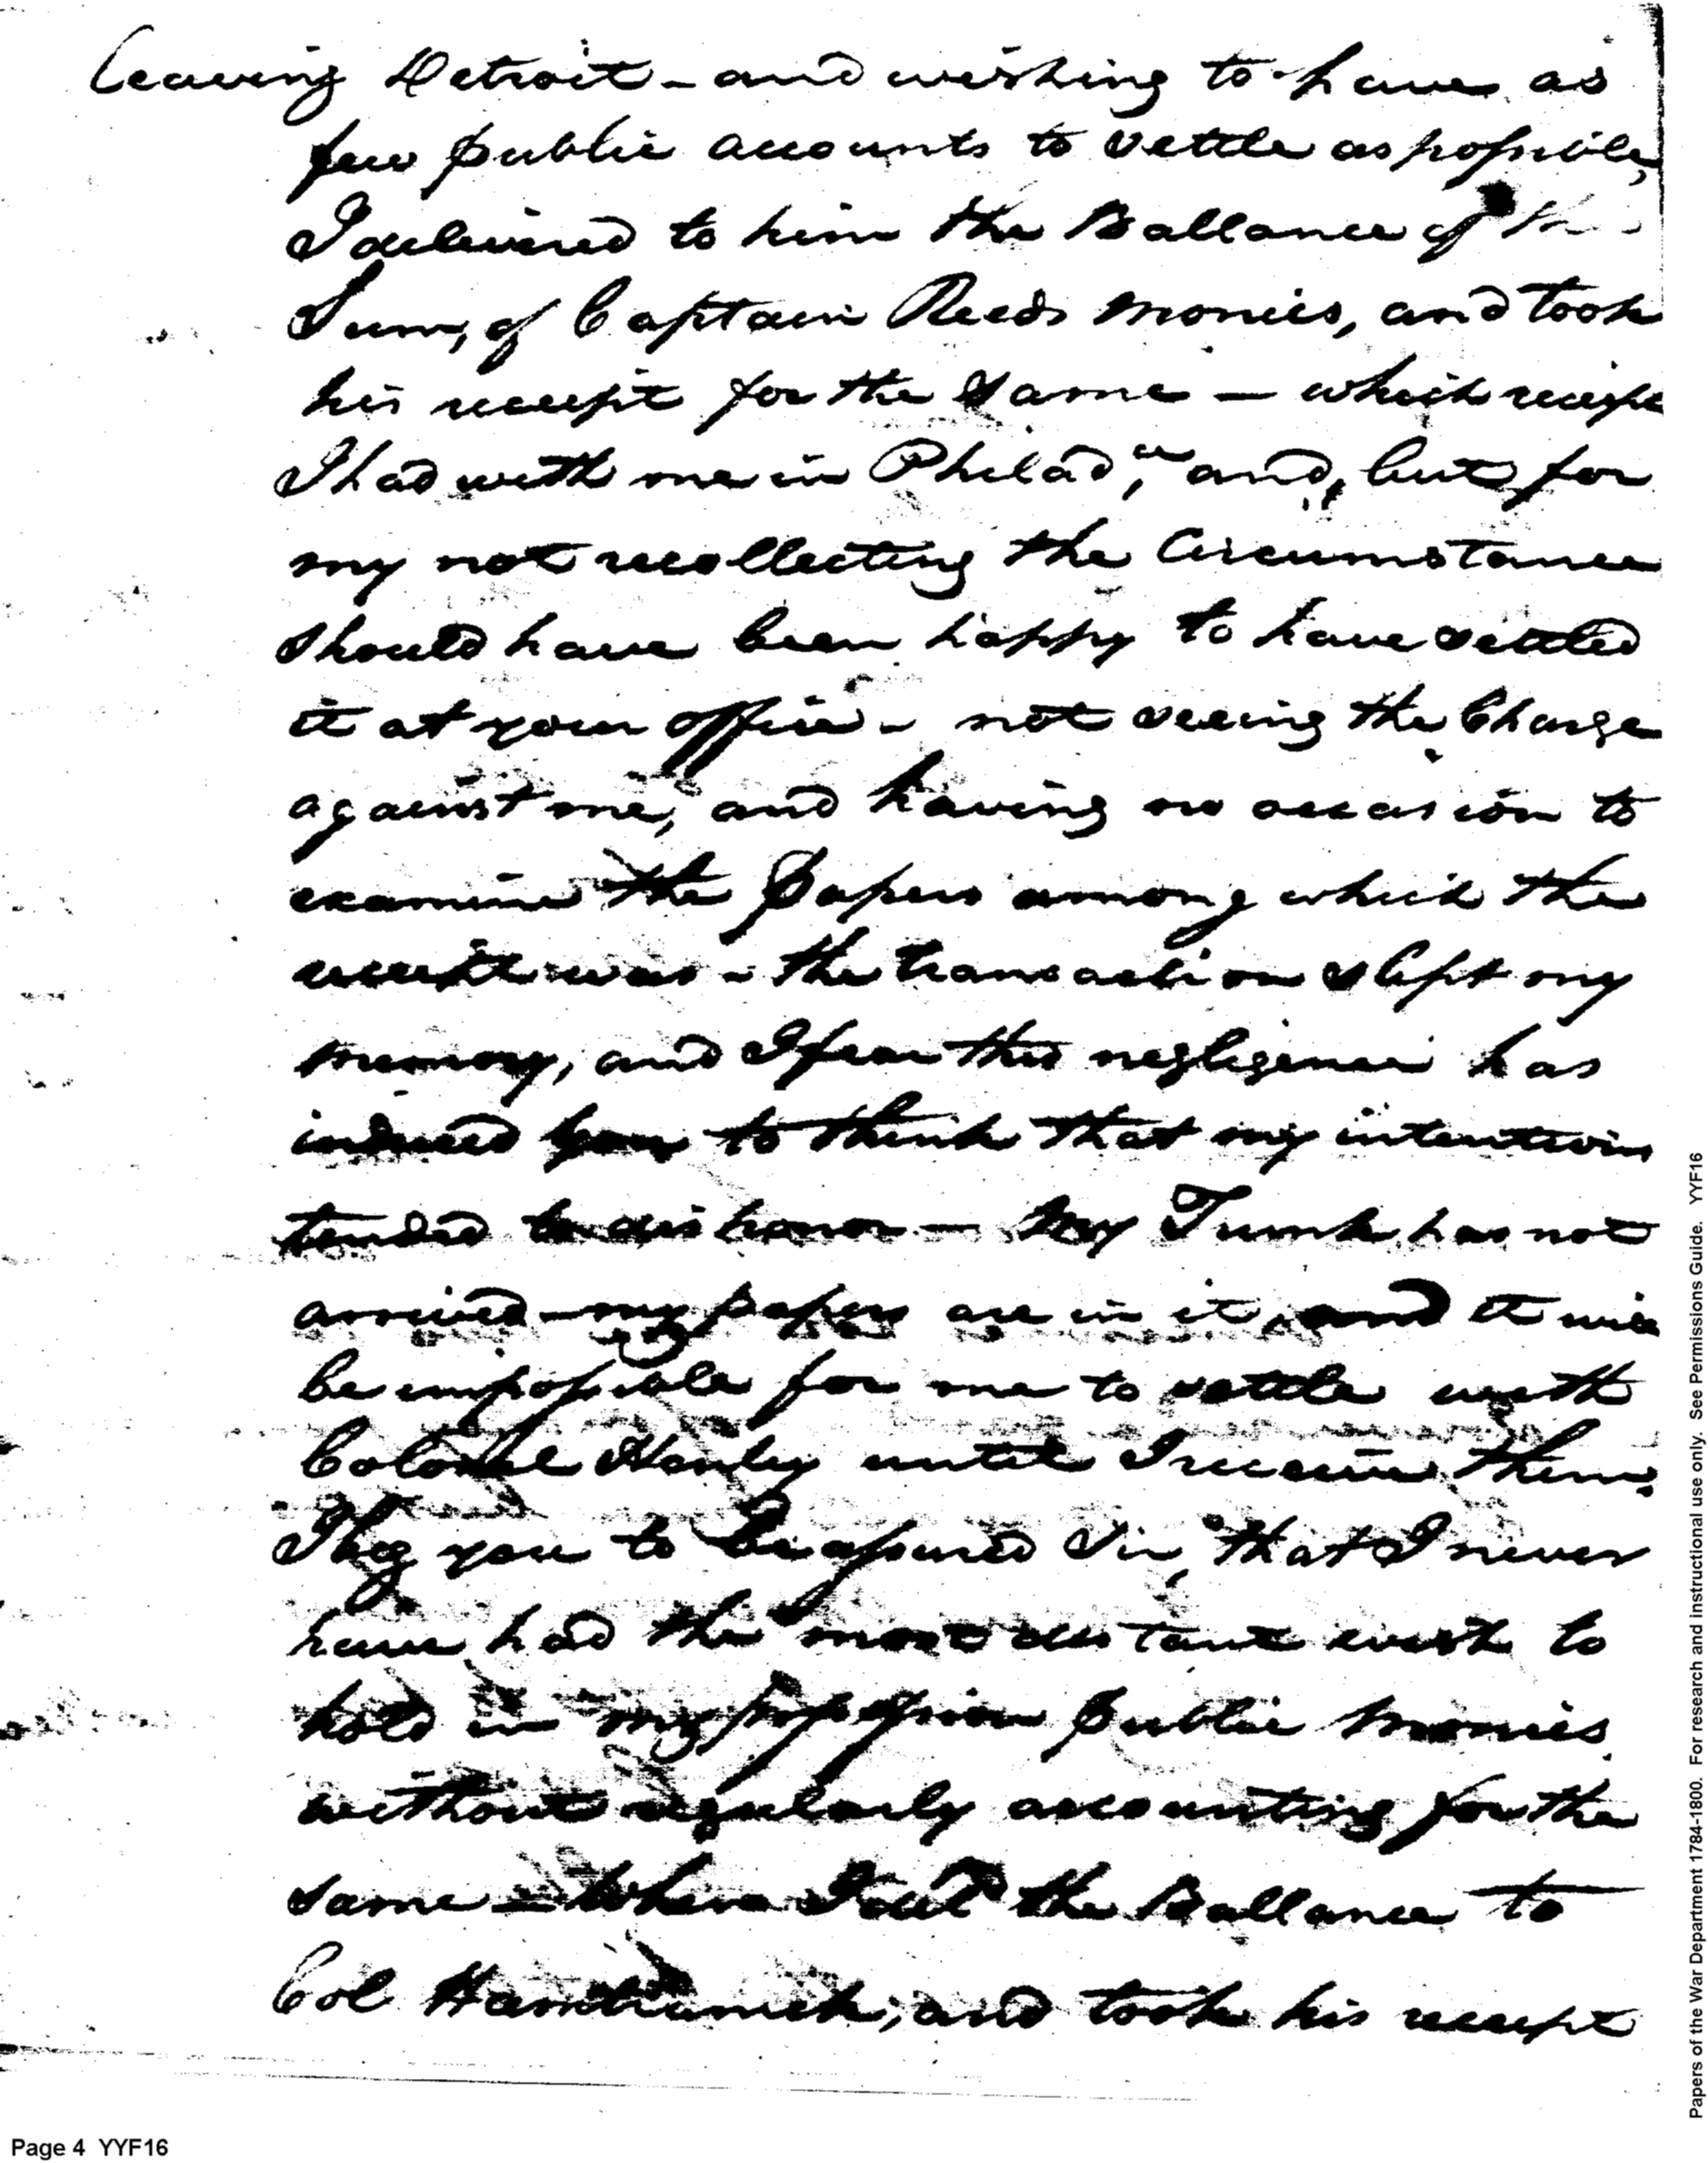 leaving Detroit - and wishing to have as
few public accounts to settle as possible,
I delivered to him the Ballance of th
Sum, of Captain Reeds monies, and took
his receipt for the same — which receipt
I had with me in Philada, and, but for
my not recollecting the Circumstance
should have been happy to have settled
it at your office - not seeing the Charge
against me, and having no occasion to
examine the Papers among which the
receipt was - the transaction slipt my
memory, and I fear this negligence has
induced you to think that my intentions
tended to dishonor — My Trunk has not
arrived - my papers are in it, and it will
be impossible for me to settle with
Colonel Henley until I receive them.
I beg you to be assured Sir, that I never
have had the most distant wish to
hold in my possession public monies
without regularly accounting for the
same - When I deld the Ballance to
Col Hamtramck, and took his receipt
Page 4 YYF16
Papers of the War Department 1784-1800. For research and instructional use only. See Permissions Guide. YYF16